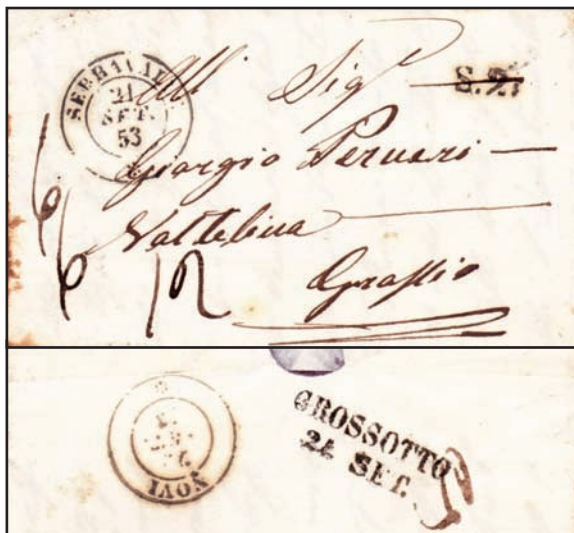 SERRAVALLE
21
SET.
53
All Sig.r
S.2.
Giorgio Peruari
Valtelina
Grossio
6/6 12
NOVI
21
SET
53
GROSSOTTO
24 SET.